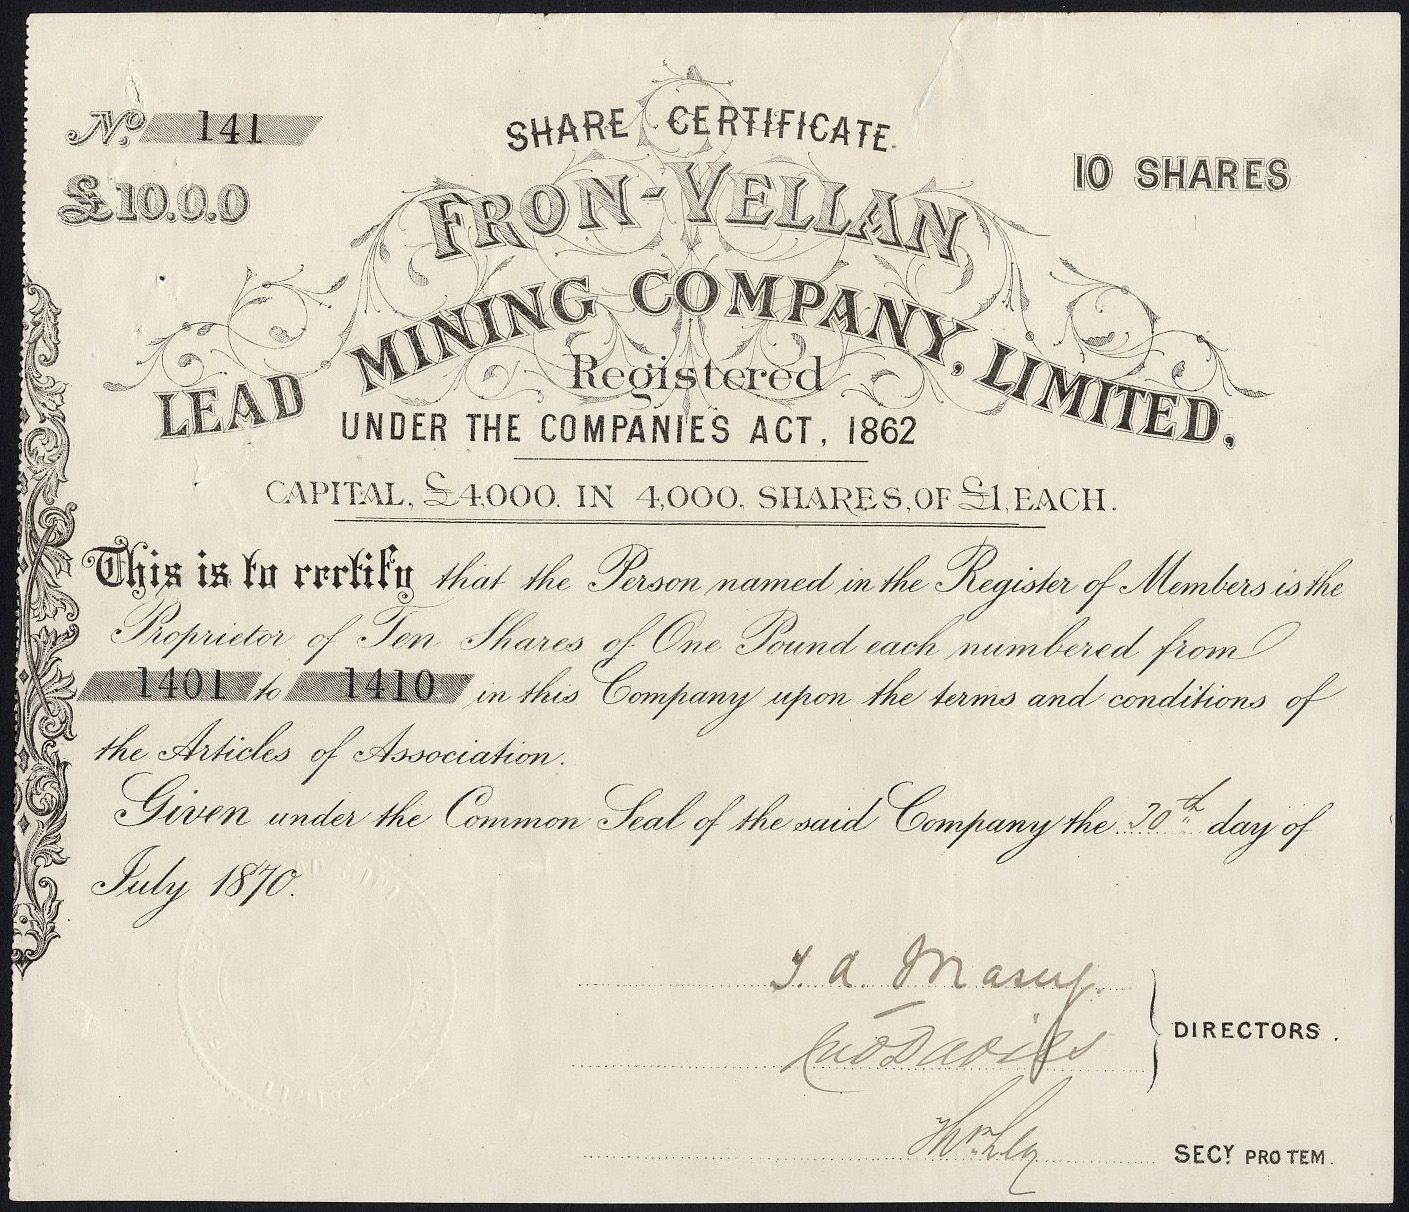 No. 141
SHARE CERTIFICATE.
£10.0.0
10 SHARES
FRON-VELLAN
LEAD MINING COMPANY, LIMITED,
Registered
UNDER THE COMPANIES ACT, 1862
CAPITAL, £4,000. IN 4,000, SHARES, OF £1, EACH.
This is to certify that the Person named in the Register of Members is the
Proprietor of Ten Shares of One Pound each numbered from
1401 to 1410 in this Company upon the terms and conditions of
the Articles of Association.
Given under the Common Seal of the said Company the 30th day of
July 1870.
Davies
DIRECTORS.
SECY. PRO TEM.
LIMITED